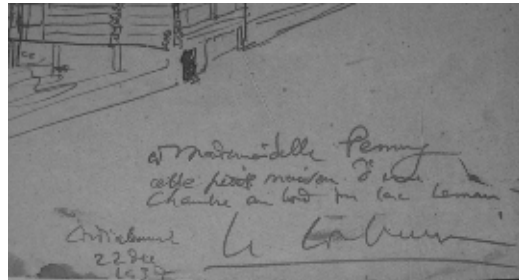 à Mademoiselle
cette petite maison d'une
Chambre au bord du lac Leman
Cordialement
Le Corbusier